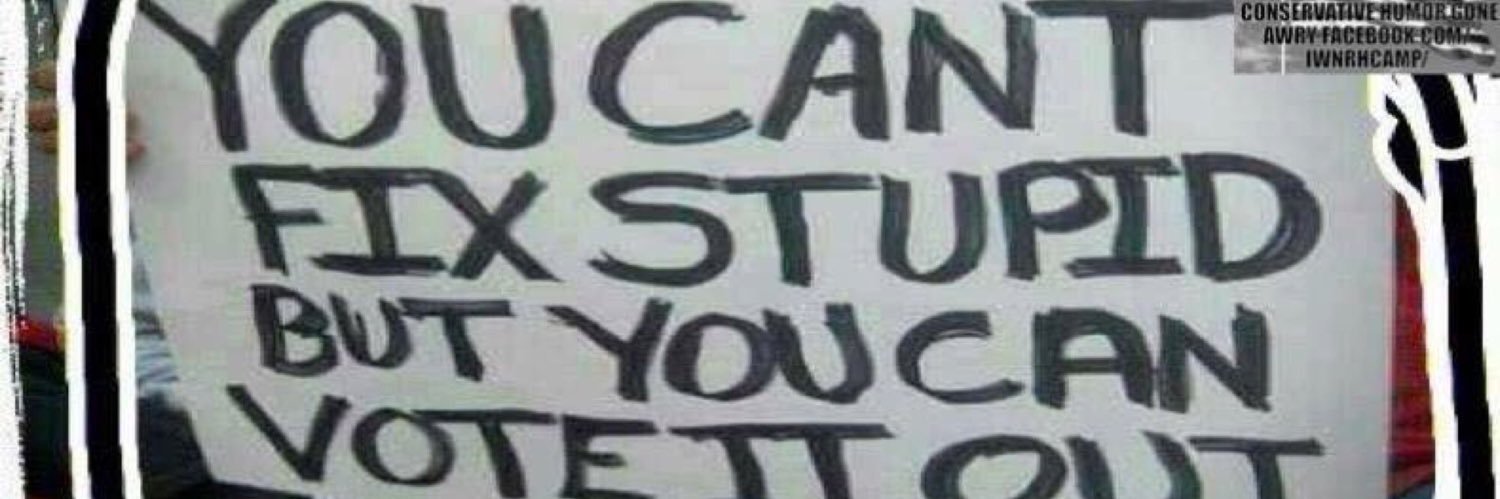 YOU CANT
FIX STUPID
BUT YOU CAN
VOTE IT OUT
CONSERVATIVE HUMOR GONE
AWRY FACEBOOK.COM/
IWNRHCAMP/